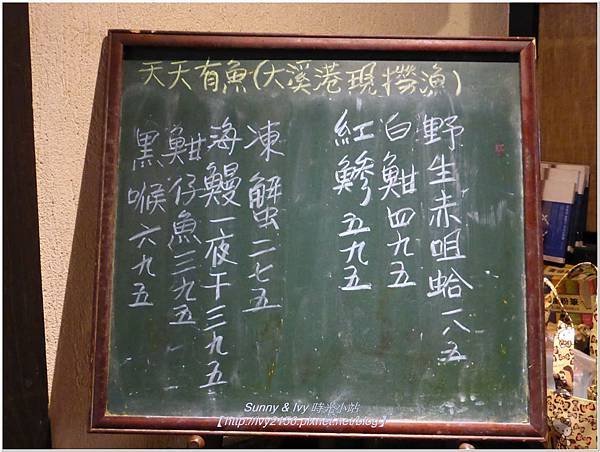 天天有魚(大溪港現撈漁)
野生赤咀蛤一八五
白魽四九五
紅鰺五九五
凍蟹二七五
海鰻一夜干三九五
魽仔魚三九五
黑喉六九五
Sunny & Ivy 時光小站